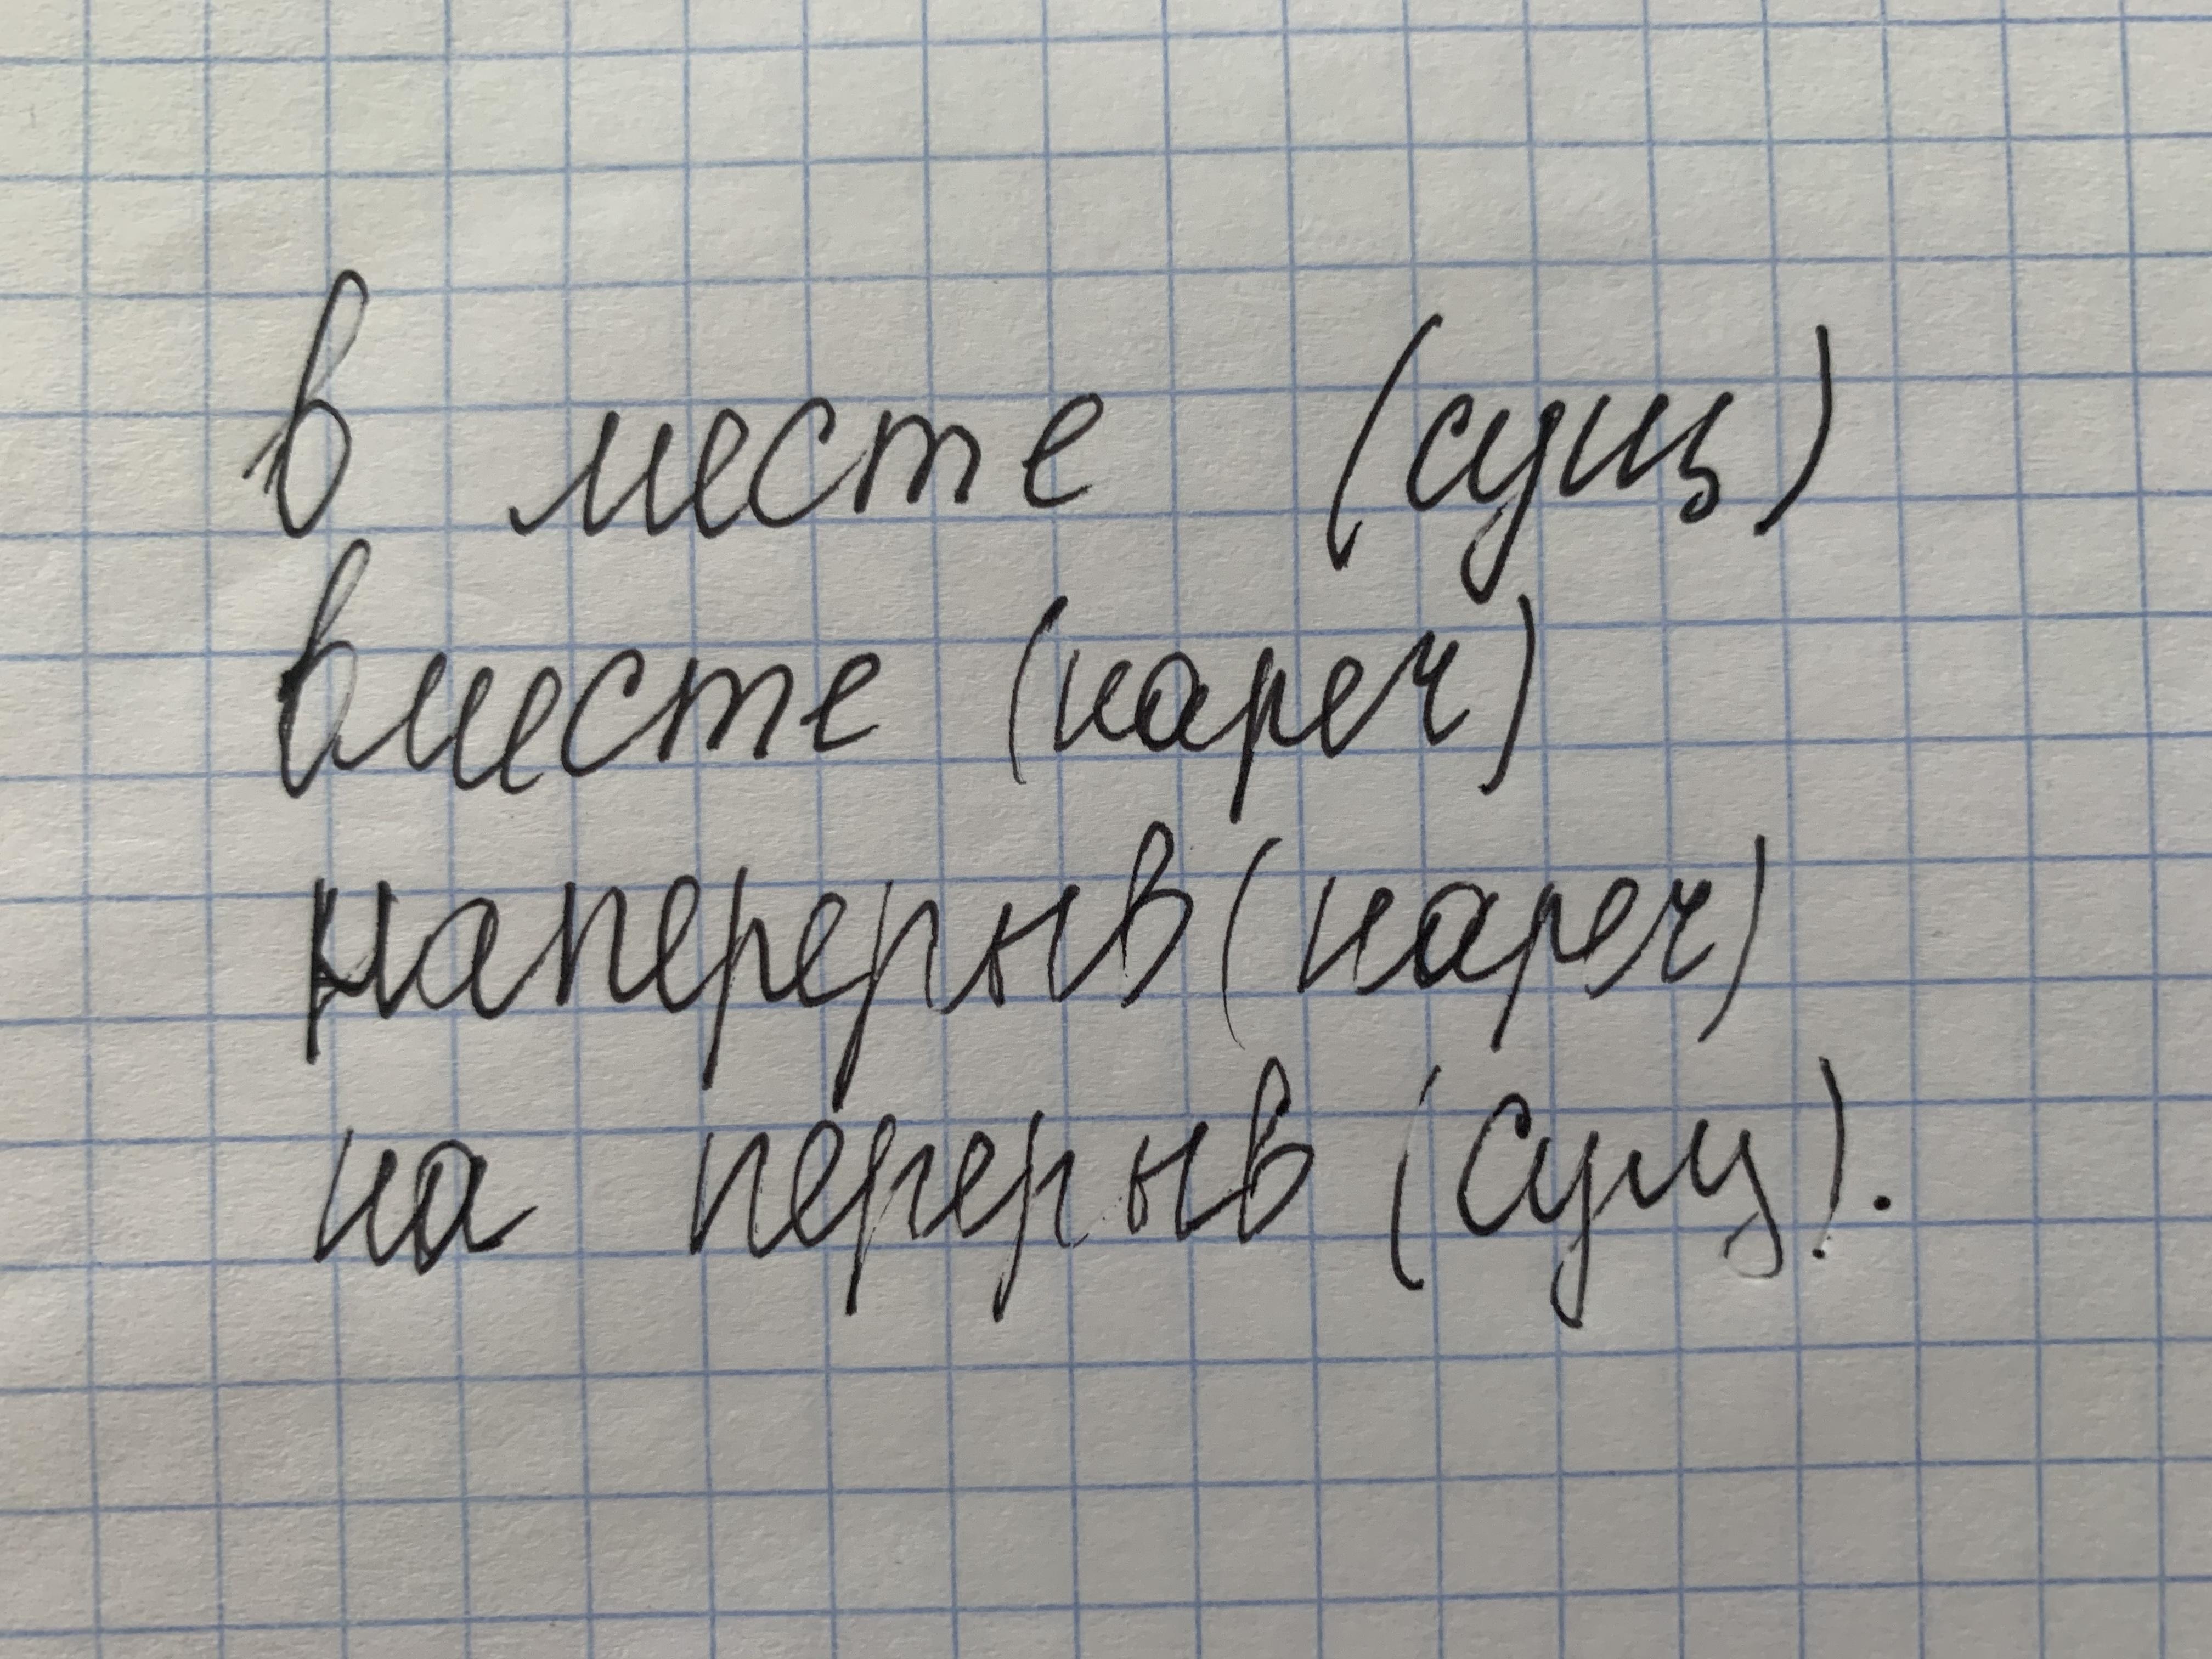 в месте (сущ)
вместе (нареч)
наперерыв (нареч)
на перерыв (сущ).